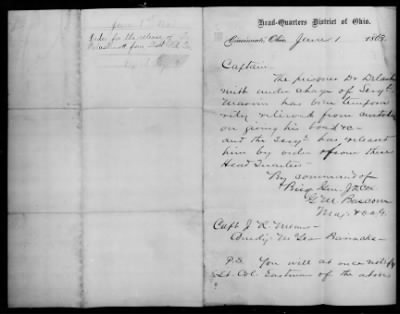 June 1st
Order for the release of Dr
from
Head-Quarters District of Ohio.
Cincinnati, Ohio, June 1 1863.
Captain
The prisoner Dr
smith under charge of Sergt
has been tempora
rily released from custody
on giving his bond &c
and the Sergt has released
him by order from these
Head Quarters
By command of
Brig Genl J D Cox
G M Bascom
Maj & a a g
Capt J R
Comdg Barracks
P.S. You will at once notify
Lt. Col. Eastman of the above